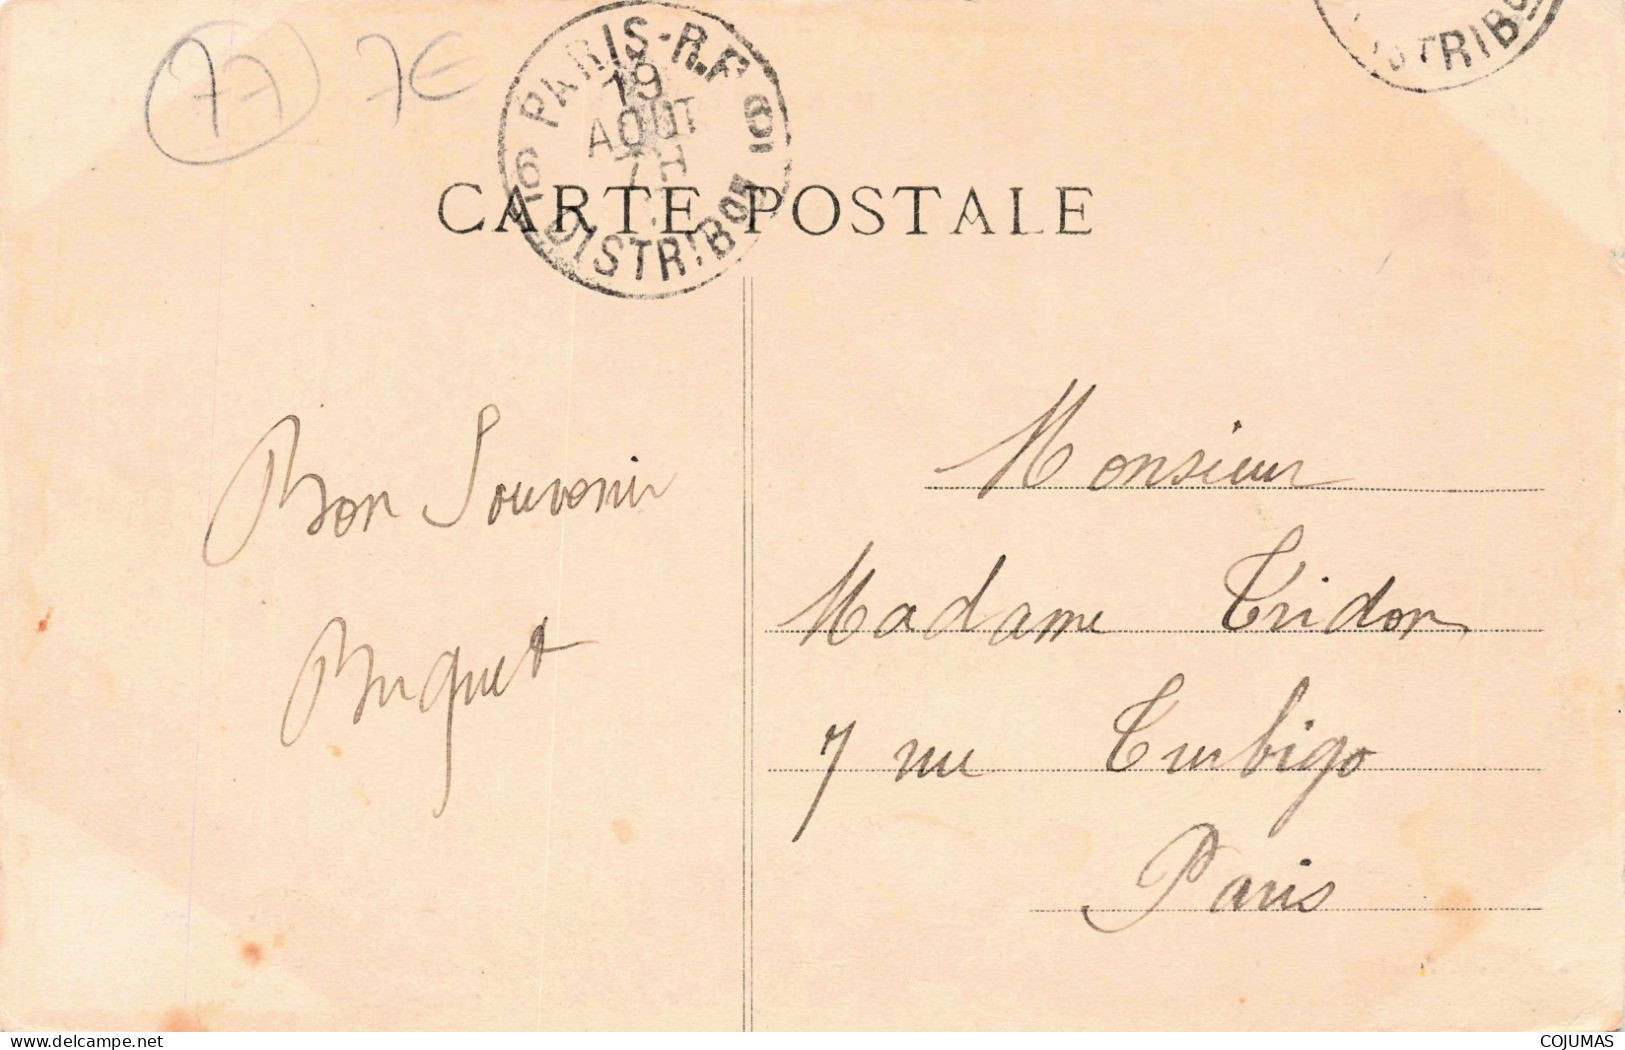 77 7€
PARIS-R.P
19
AOUT
7H
DISTRIBON
STRIBO
CARTE POSTALE
Bon Souvenir
Buquet
Monsieur
Madame Tridon
7 rue Turbigo
Paris
delcampe.net
COJUMAS